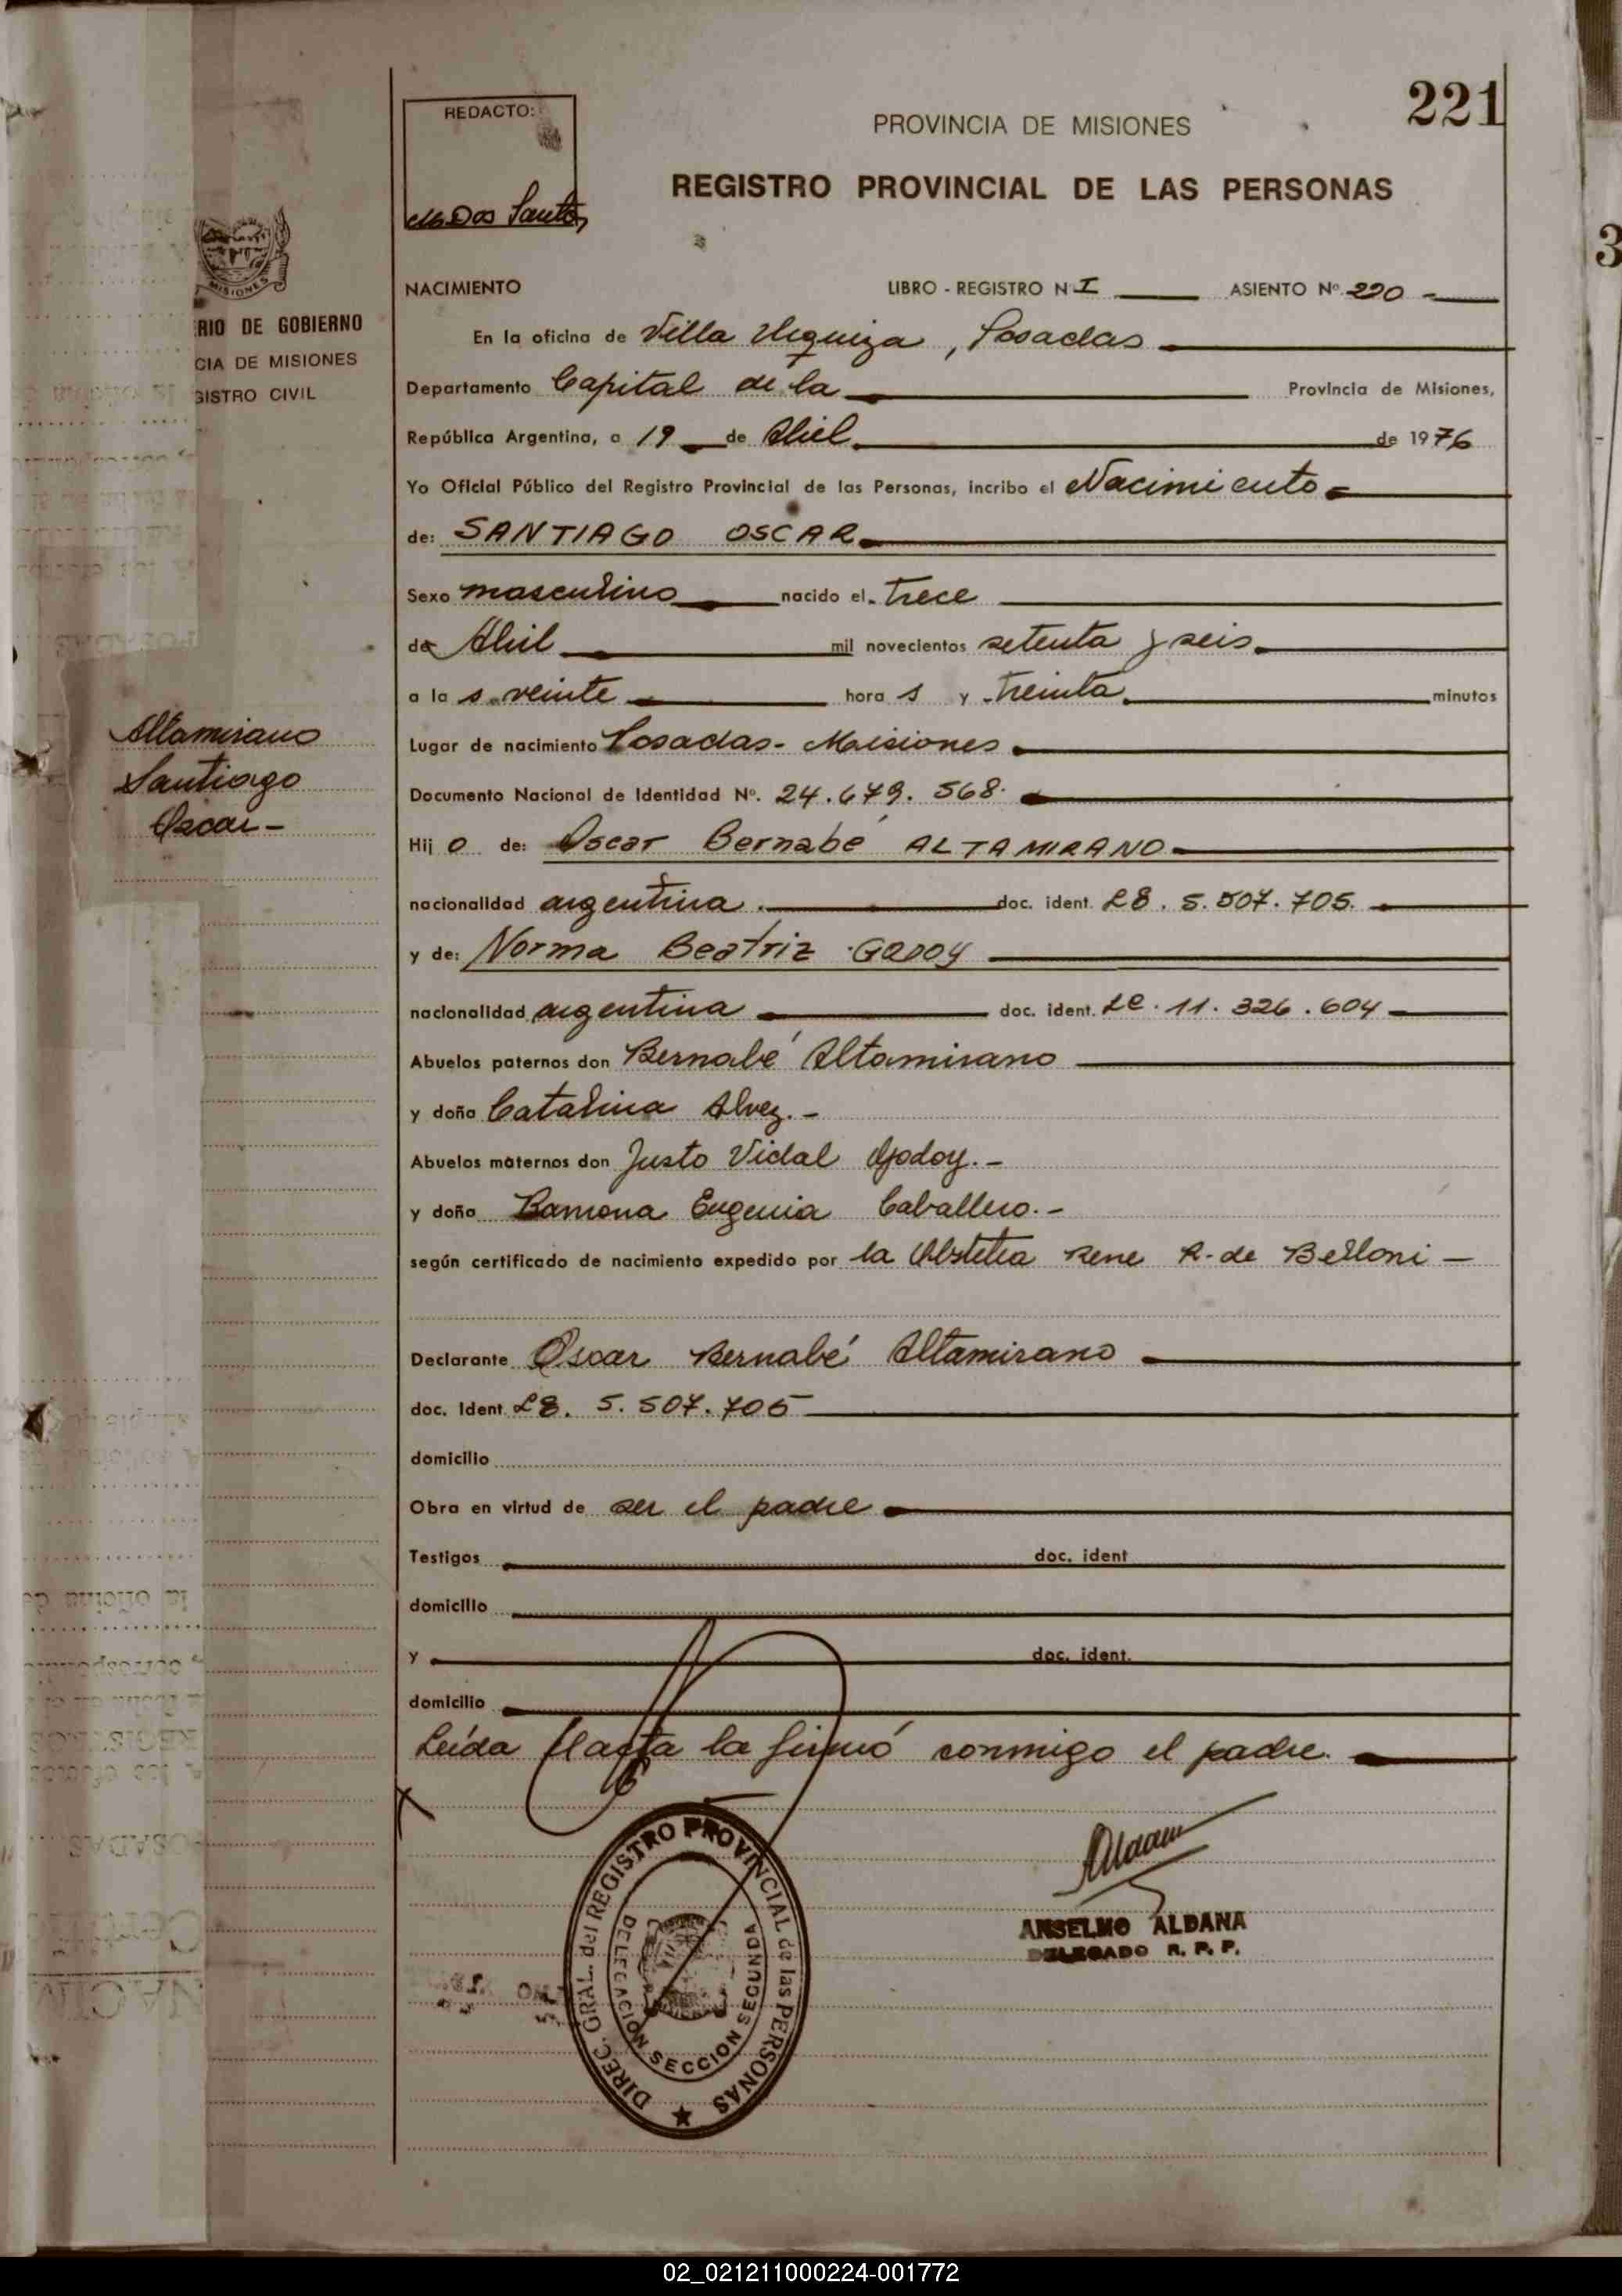 221
REDACTO:
PROVINCIA DE MISIONES
REGISTRO PROVINCIAL DE LAS PERSONAS
Dos Santos
3
MISIONES
NACIMIENTO LIBRO - REGISTRO N I ASIENTO Nº 220 -
RIO DE GOBIERNO
CIA DE MISIONES
GISTRO CIVIL
En la oficina de Villa Urquiza, Posadas
Departamento Capital de la Provincia de Misiones,
República Argentina, a 19 de Abril de 1976
Yo Oficial Público del Registro Provincial de las Personas, incribo el Nacimiento
de: SANTIAGO OSCAR
Sexo masculino nacido el trece
de Abril mil novecientos setenta y seis
a la s veinte hora s y treinta minutos
Altamirano
Santiago
Oscar -
Lugar de nacimiento Posadas - Misiones
Documento Nacional de Identidad Nº. 24.679.568.
Hij o de: Oscar Bernabé ALTAMIRANO
nacionalidad argentina doc. ident. L8. 5.507.705.
y de: Norma Beatriz GODOY
nacionalidad argentina doc. ident. LC. 11.326.604
Abuelos paternos don Bernabé Altamirano
y doña Catalina Alvez. -
Abuelos maternos don Justo Vidal Godoy. -
y doña Ramona Eugenia Caballero. -
según certificado de nacimiento expedido por la Obstetra Rene R. de Belloni -
Declarante Oscar Bernabé Altamirano
doc. Ident L8. 5.507.705
domicilio
Obra en virtud de ser el padre
Testigos doc. ident
domicilio
y doc. ident.
domicilio
Leída el acta la firmó conmigo el padre.
DIREC. GRAL. del REGISTRO PROVINCIAL de las PERSONAS
DELEGACION SECCION SEGUNDA
ANSELMO ALDANA
DELEGADO R. P. P.
02_021211000224-001772